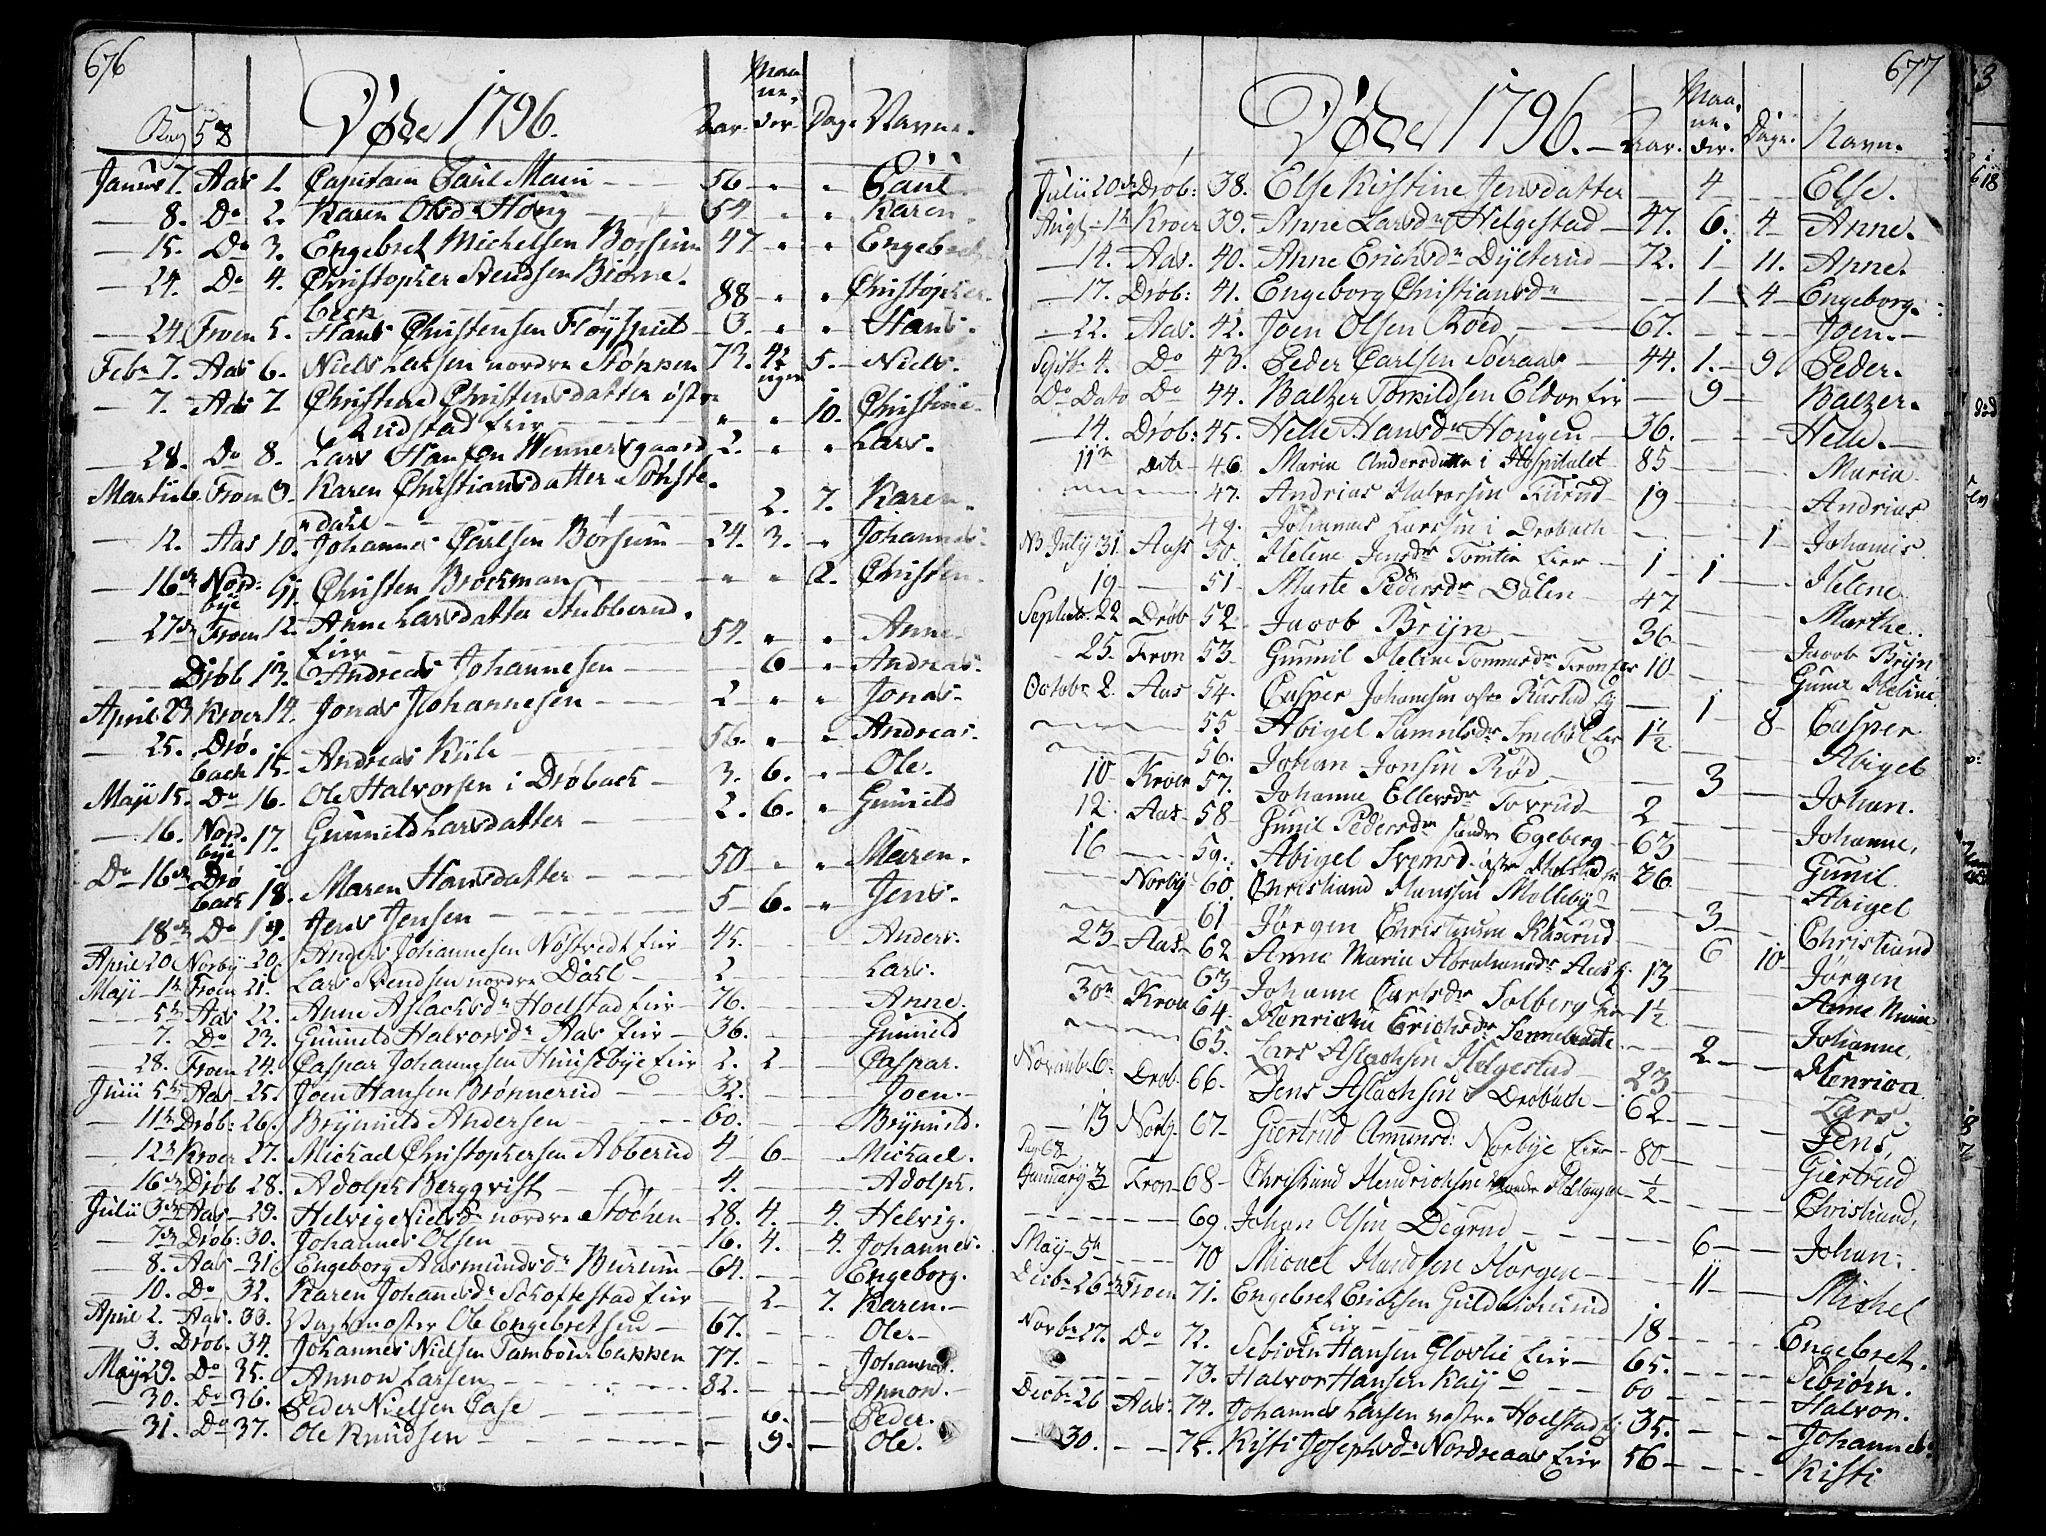 676
Pag 58 Døde 1796. Aar. Maaneder. Dage Navne.
Januar 7. Aas 1. Capitain Paul Main 56 " " Paul
8. Do 2. Karen Olsdr Houg 54 " " Karen
15. Do 3. Engebret Michelsen Børsum 47 " " Engebret
24. Do 4. Christopher Svendsen Biørnebeck 88 " " Christopher.
24 Froen 5. Hans Christensen Fløyspiet 3. " " Hans.
Febr 7. Aas 6. Niels Larsen nordre Støkken 73. 42 uger 5. Niels.
7. Aas 7. Christine Christensdatter østre Rudstad Eier " " 10. Christine
28. Do 8. Lars Hansen Wennersgaard 2. " " Lars.
Martii 6. Froen 9. Karen Christiansdatter Sønstedahl 2. 7. Karen.
12. Aas 10. Johannes Carlsen Børsum 24. 3. " Johannes.
16de Nordbye 11. Christen Brockman " " 2. Christen.
27de Froen 12. Anne Larsdatter Stubberud Eier 54. " " Anne
Drøb 13. Andreas Johannesen 6 " Andreas.
April 23 Kroer 14. Jonas Johannesen 2 " " Jonas
25. Drøbach 15 Andreas Kiile 56. " " Andreas.
Maji 15. Do 16. Ole Halvorsen i Drøback 3. 6. " Ole.
16. Nordbye 17. Gunnild Larsdatter 2. 6. " Gunnild
Do 16de Drøbach 18. Maren Hansdatter 50 " " Maren.
18de Do 19. Jens Jensen 5 6. " Jens.
April 20 Norby 20. Anders Johannesen Nøstvedt Eier 45. Anders.
Maji 1te Froen 21. Lars Svendsen nordre Dahl 2 Lars.
5te Aas 22. Anne Aslachsdr Hoelstad Eier 76. Anne
7. Do 23. Gunnild Halvorsdr Aas Eier 36. Gunnild
28. Froen 24. Caspar Johannesen Huusebye Eier 2. 2 Caspar.
Junii 5te Aas 25. Joen Hansen Brønnerud 32. Joen
11te Drøb: 26. Brynnild Andersen 60. Brynnild.
12te Kroer 27. Michael Christophersen Aaberud 4 6 Michael.
16de Drøb 28. Adolph Bergqvist 4. Adolph.
Julii 3de Aas 29. Helvig Nielsdr nordre Støcken 28. 4. 4. Helvig.
7de Drøb: 30. Johannes Olsen 16. 4. 4. Johannes.
8. Aas 31. Engeborg Aasmundsdr Burum 64. Engeborg.
10. Do 32. Karen Johansdr Schoftestad Eier 2 7. Karen.
April 2. Aas. 33. Vagtmester Ole Engebretsen 67. Ole.
3. Drøb. 34. Johannes Nielsen Tambourbakken 77. Johannes.
May 29. Do 35. Annon Larsen 82. Annon.
30. Do 36. Peder Nielsen Case 6. Peder.
31. Do 37. Ole Knudsen 9. Ole.
677
Døde 1796. Aar. Maaneder. Dage. Navne.
Julii 20de Drøb: 38. Else Kirstine Jensdatter 4 Else.
Augt 1te Kroer 39. Anne Larsdr Helgestad 47. 6. 4 Anne.
14. Aas. 40. Anne Erichsdr Dysterud 72. 1 11. Anne.
17. Drøb: 41. Engeborg Christiansdr 1 4 Engeborg.
22. Aas. 42. Joen Olsen Roed 67. Joen.
Septb. 4. Do 43. Peder Carlsen Søeraas 44. 1. 9 Peder.
Do Dato Do 44. Balzer Tomildsen Eldor Eier 9 Balzer.
14. Drøb: 45. Helle Hansdr Hougen 36. Helle.
11te dito 46. Maria Andersdatter i Hospitalet 85 Maria
47. Andrias Halvorsen 19 Andrias
49. Johannes Larsen i Drøbach 1 Johannis.
NB July 31. Aass 50. Helene Jensdr Tomter Eier 1 1 Helene
19 51. Marte Pedersdr Dalen 47 Marthe.
Septbr 22 Drøb 52. Jacob Brijn 36 Jacob Brijn
25. Fron 53. Gunnil Heline Tommesdr Fron Eier 10 Gunil Heline
Octobr 2. Aas 54. Casper Johannesen østre Rustad Ey 1 8 Casper
55 Abigel Samuelsdr Smebøl Eier 1½ Abigel
56. Johan Jonsen Rød 3 Johan.
10 Kroer 57. Johanne Ellersdr Tovrud 2 Johanne.
12. Aas 58 Gunil Pedersdr søndre Egeberg 63 Gunil.
16 59. Abigel Svensd. østre 26 Abigel
Norby 60. Christiand Hanssen Mølleby 3 Christiand
61 Jørgen Christensen Kaxrud 6 10 Jørgen
23 Aas 62 Anne Maria Abrahamsdr Aas E. 13 Anne Maria
63 Johanne Carlsdr Solberg Eier 1½ Johanne.
30te Kroer 64. Henrichu Erichsdr 2 Henrica
65. Lars Aslachsen Helgestad 23 Lars
Novembr 6. Drob. 66. Jens Aslachsen i Drøbach 62 Jens
13 Norby 67 Giertrud Amunsd: Norbye Eier 80 Giertrud
Pag 68
January 3 Fron 68 Christiand Hendrichsen nordre ½ Christiand.
69. Johan Olsen Degrud 6 Johan.
May 5te 70 Micael Knudsen Horgen 11 Michel
Decbr 26de Froen 71. Engebret Ericksen Guldbichrud Eier 18 Engebret.
Novbr 27. Do 72. Sebiørn Hansen Glosli Eier 65. Sebiørn.
73. Halvor Hansen Kay 60 Halvor.
Decbr 26 Aas. 74. Johannes Larsen vestre Hoelstad Ej 35. Johannes
30. 75. Kisti Josephsdr Nordreaas Eier 56 Kisti